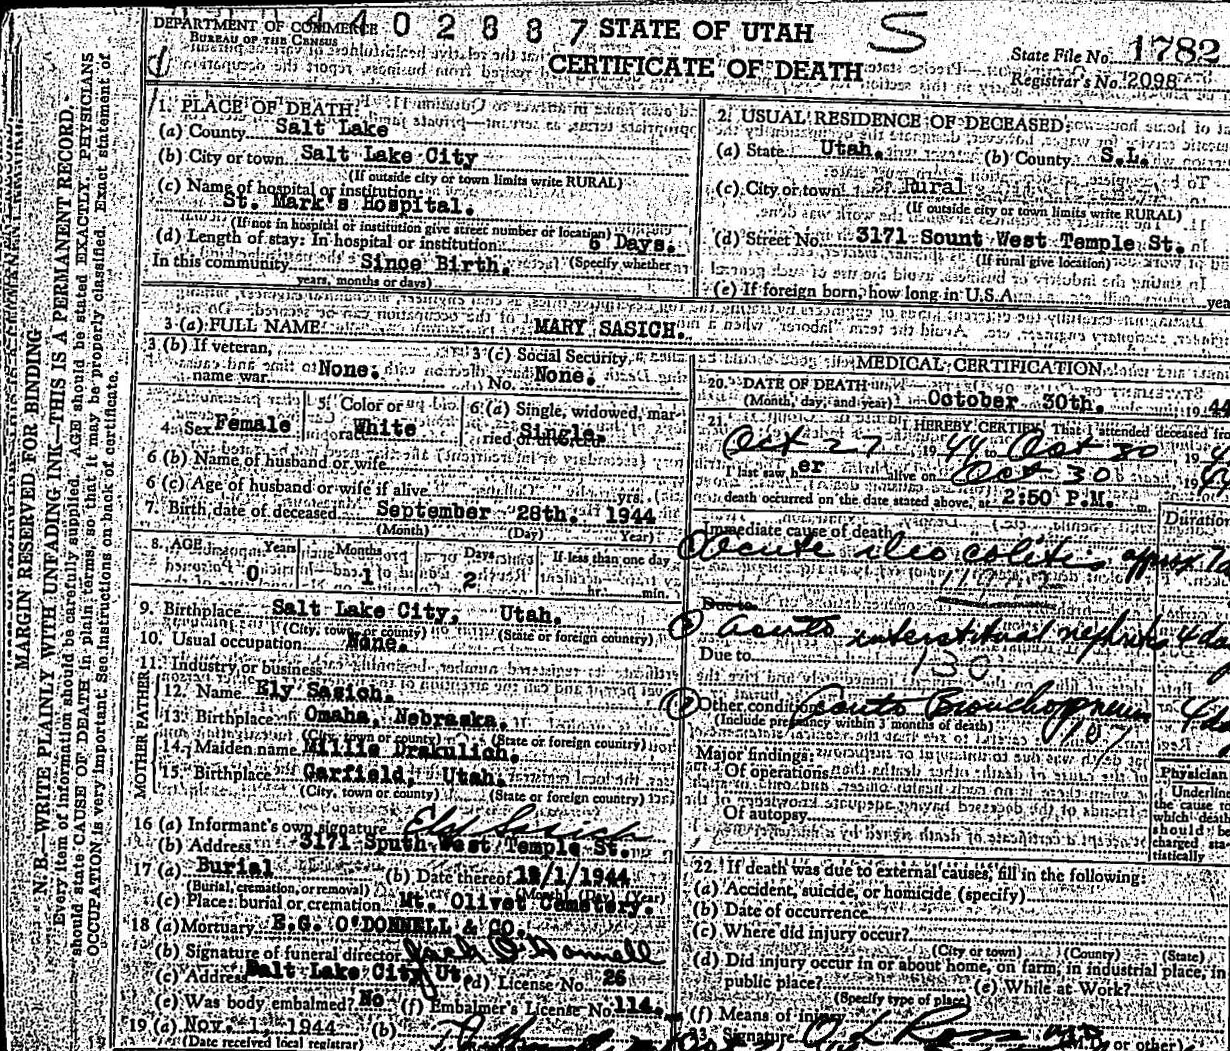 DEPARTMENT OF COMMERCE
BUREAU OF THE CENSUS
4402887
STATE OF UTAH
S
CERTIFICATE OF DEATH
State File No. 1782
Registrar's No. 2098
MARGIN RESERVED FOR BINDING
N. B.—WRITE PLAINLY WITH UNFADING INK—THIS IS A PERMANENT RECORD.
Every item of information should be carefully supplied. AGE should be stated EXACTLY. PHYSICIANS
should state CAUSE OF DEATH in plain terms, so that it may be properly classified. Exact statement of
OCCUPATION is very important. See instructions on back of certificate.
1. PLACE OF DEATH:
(a) County Salt Lake
(b) City or town Salt Lake City
(If outside city or town limits write RURAL)
(c) Name of hospital or institution:
St. Mark's Hospital.
(If not in hospital or institution give street number or location)
(d) Length of stay: In hospital or institution 6 Days.
In this community Since Birth. (Specify whether
years, months or days)
2. USUAL RESIDENCE OF DECEASED:
(a) State Utah. (b) County S.L.
(c) City or town Rural
(If outside city or town limits write RURAL)
(d) Street No. 3171 Sount West Temple St.
(If rural give location)
(e) If foreign born, how long in U.S.A. yea
3 (a) FULL NAME MARY SASICH.
3 (b) If veteran,
name war None.
3 (c) Social Security
No. None.
4. Sex Female
5. Color or
race White
6 (a) Single, widowed, mar-
ried or divorced Single.
6 (b) Name of husband or wife
6 (c) Age of husband or wife if alive yrs.
7. Birth date of deceased September 28th. 1944
(Month) (Day) (Year)
8. AGE Years Months Days If less than one day
0 1 2 hr. min.
9. Birthplace Salt Lake City, Utah.
(City, town, or county) (State or foreign country)
10. Usual occupation None.
11. Industry or business
FATHER
12. Name Ely Sasich.
13. Birthplace Omaha, Nebraska.
(City, town or county) (State or foreign country)
MOTHER
14. Maiden name Millie Drakulich.
15. Birthplace Garfield, Utah.
(City, town or county) (State or foreign country)
16 (a) Informant's own signature Ely Sasich
(b) Address 3171 Sputh West Temple St.
17 (a) Burial (b) Date thereof 1944
(Burial, cremation, or removal) (Month) (Day) (Year)
(c) Place: burial or cremation Mt. Olivet Cemetery.
18 (a) Mortuary E.G. O'DONNELL & CO.
(b) Signature of funeral director Jack O'Donnell
(c) Address Salt Lake City Ut. (d) License No. 26
(e) Was body embalmed? No (f) Embalmer's License No. 114.
19 (a) Nov. 1, 1944 (b)
(Date received local registrar)
MEDICAL CERTIFICATION
20. DATE OF DEATH
(Month, day, and year) October 30th. 1944
21. I HEREBY CERTIFY That I attended deceased fro
Oct 27 1944 to Oct 30 19
I last saw her alive on Oct 30 19
death occurred on the date stated above, at 2:50 P.M. m.
Duration
Immediate cause of death
Acute ileo colitis approx 7
Due to
119
Acute interstitual nephritis 4 da
Due to
130
Other conditions Acute Bronchopneum 4 d
(Include pregnancy within 3 months of death)
107
Major findings:
Of operations
Of autopsy
Physician
Underline
the cause
which death
should be
charged sta-
tistically
22. If death was due to external causes, fill in the following:
(a) Accident, suicide, or homicide (specify)
(b) Date of occurrence
(c) Where did injury occur?
(City or town) (County) (State)
(d) Did injury occur in or about home, on farm, in industrial place, in
public place? (e) While at Work?
(Specify type of place)
(f) Means of injury
23. Signature M.D.
(M.D. or other)